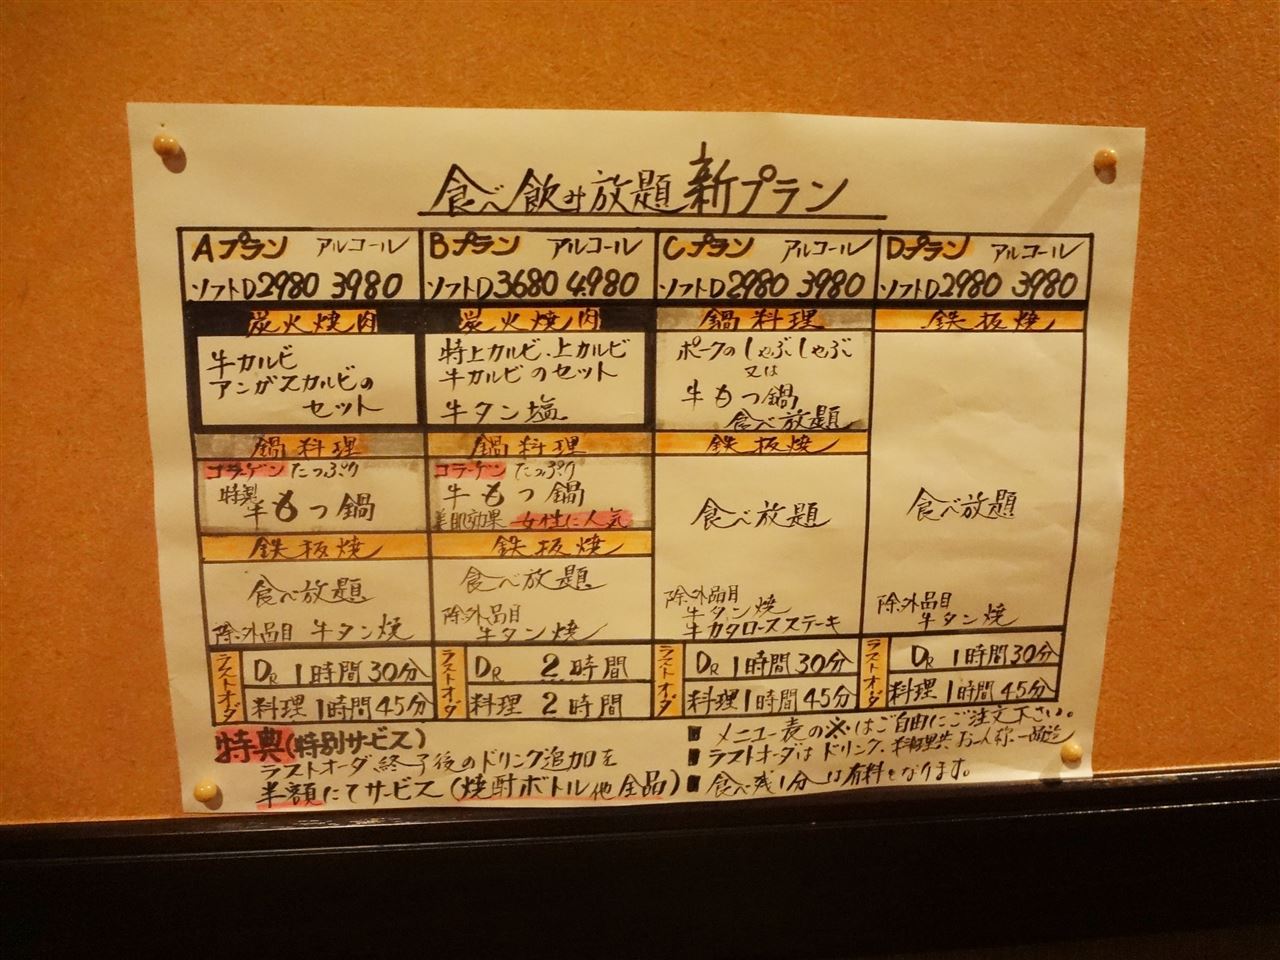 食べ飲み放題 新プラン
Aプラン アルコール
ソフトD2980 3980
炭火焼肉
牛カルビ
アンガスカルビの
セット
鍋料理
コラーゲンたっぷり
特製
牛もつ鍋
鉄板焼
食べ放題
除外品目 牛タン焼
ラストオーダ
DR 1時間30分
料理 1時間45分
Bプラン アルコール
ソフトD3680 4.980
炭火焼肉
特上カルビ、上カルビ
牛カルビのセット
牛タン塩
鍋料理
コラーゲン たっぷり
牛もつ鍋
美肌効果 女性に人気
鉄板焼
食べ放題
除外品目
牛タン焼
ラストオーダ
DR 2時間
料理 2時間
Cプラン アルコール
ソフトD2980 3980
鍋料理
ポークのしゃぶしゃぶ
又は
牛もつ鍋
食べ放題
鉄板焼
食べ放題
除外品目
牛タン焼
牛カタロースステーキ
ラストオーダ
DR 1時間30分
料理1時間45分
Dプラン アルコール
ソフトD2980 3980
鉄板焼
食べ放題
除外品目
牛タン焼
ラストオーダ
DR 1時間30分
料理 1時間45分
特典(特別サービス)
ラストオーダ終了後のドリンク追加を
半額にてサービス(焼酎ボトル他全品)
■ メニュー表の※はご自由にご注文下さい。
■ ラストオーダはドリンク、料理共、お一人様、一品迄
■ 食べ残し分は有料となります。